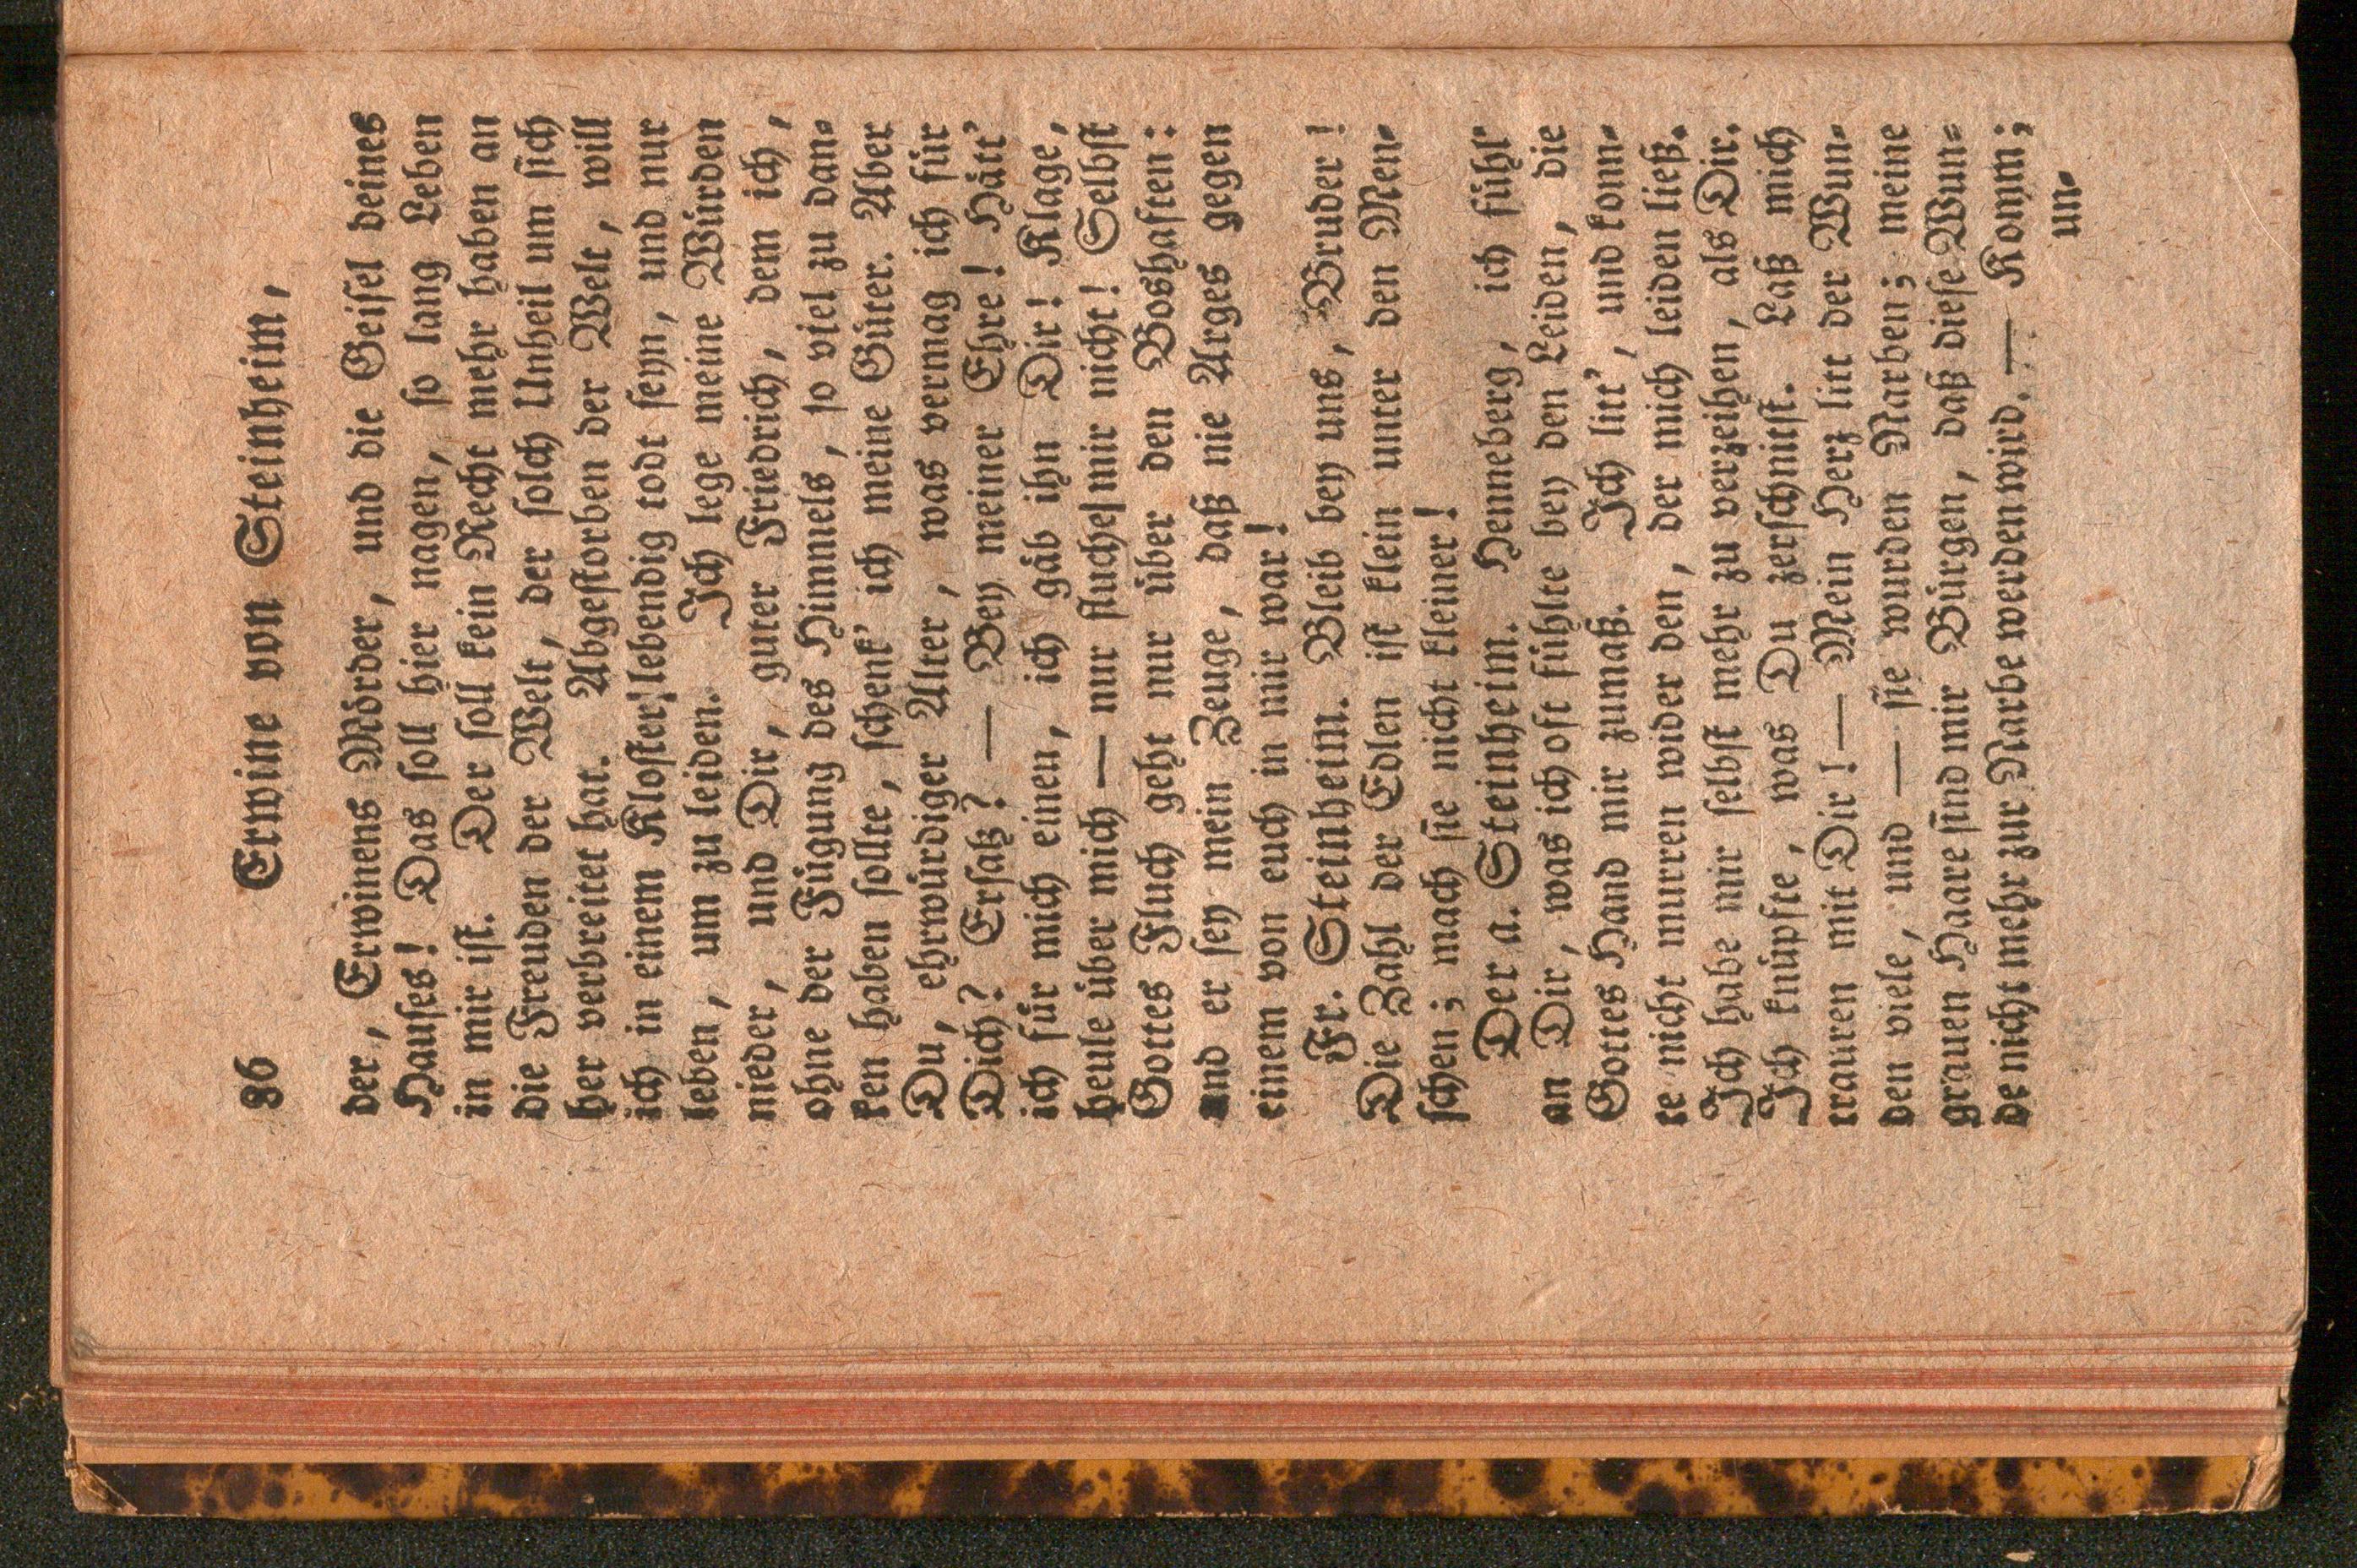 86 Erwine von Steinheim,
der, Erwinens Mörder, und die Geisel deines
Hauses! Das soll hier nagen, so lang Leben
in mir ist. Der soll kein Recht mehr haben an
die Freuden der Welt, der solch Unheil um sich
her verbreitet hat. Abgestorben der Welt, will
ich in einem Kloster lebendig todt seyn, und nur
leben, um zu leiden. Ich lege meine Würden
nieder, und Dir, guter Friedrich, dem ich,
ohne der Fügung des Himmels, so viel zu dan-
ken haben sollte, schenk' ich meine Güter. Aber
Du, ehrwürdiger Alter, was vermag ich für
Dich? Ersatz? — Bey meiner Ehre! Hätt'
ich für mich einen, ich gäb ihn Dir! Klage,
heule über mich — nur fluche mir nicht! Selbst
Gottes Fluch geht nur über den Boshaften:
und er sey mein Zeuge, daß nie Arges gegen
einem von euch in mir war!
Fr. Steinheim. Bleib bey uns, Bruder!
Die Zahl der Edlen ist klein unter den Men-
schen; mach sie nicht kleiner!
Der a. Steinheim. Henneberg, ich fühl'
an Dir, was ich oft fühlte bey den Leiden, die
Gottes Hand mir zumaß. Ich litt', und konn-
te nicht murren wider den, der mich leiden ließ.
Ich habe mir selbst mehr zu verzeihen, als Dir.
Ich knüpfte, was Du zerschnitst. Laß mich
trauren mit Dir! — Mein Herz litt der Wun-
den viele, und — sie wurden Narben; meine
grauen Haare sind mir Bürgen, daß diese Wun-
de nicht mehr zur Narbe werden wird. — Komm;
un-